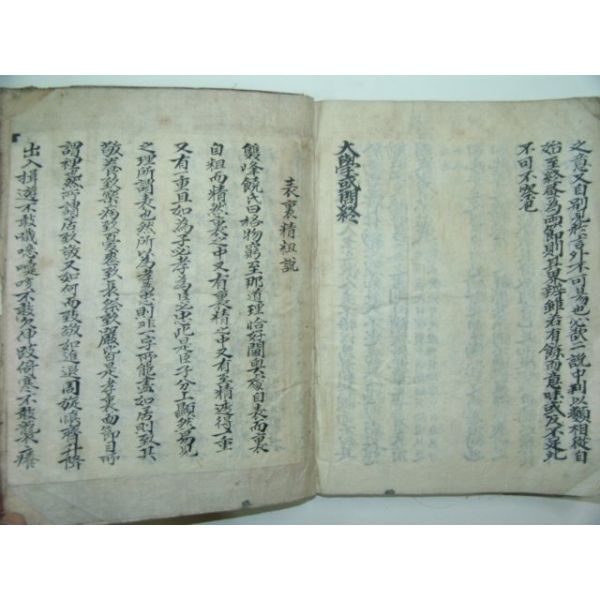 之意又自別見於言外不可易也必欲二說中判以類相從自
始至終畫為兩節則其界辨雖若有餘而意味或反不足此
不可不察也
大學或問終
表裏精粗說
雙峰饒氏曰格物窮至那道理恰好閫奧處自表而裏
自粗而精然裏之中又有裏精之中又有至精透得一重
又有一重且如為子必孝為臣必忠此是臣子分上顯然易見
之理所謂表也然所以為孝為忠則非一字所能盡如居則致其
敬養致樂病致憂喪致哀祭致嚴皆是孝裏面節目所
謂裡也然所謂居致敬又如何而致敬如進退周旋慎齊升降
出入揖遊不敢噦噫嚏咳不敢欠伸跛倚寒不敢襲癢